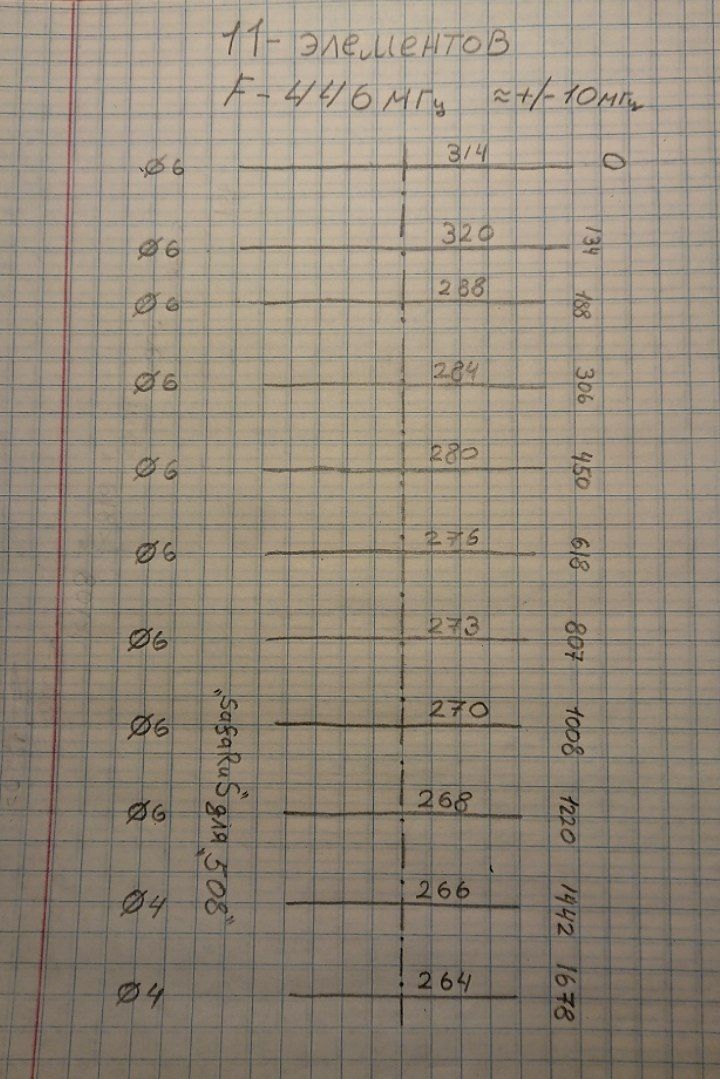 11- элементов
F - 446 мгц ≈ +/- 10 мгц
Ø6 314 0
Ø6 320 134
Ø6 288 188
Ø6 284 306
Ø6 280 450
Ø6 276 618
Ø6 273 807
Ø6 270 1008
Ø6 268 1220
Ø4 266 1442
Ø4 264 1678
"SafaRuS" для "508"